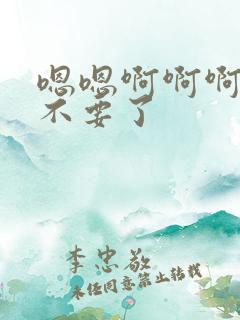 嗯嗯啊啊啊
不要了
李忠敬
未经同意禁止转载